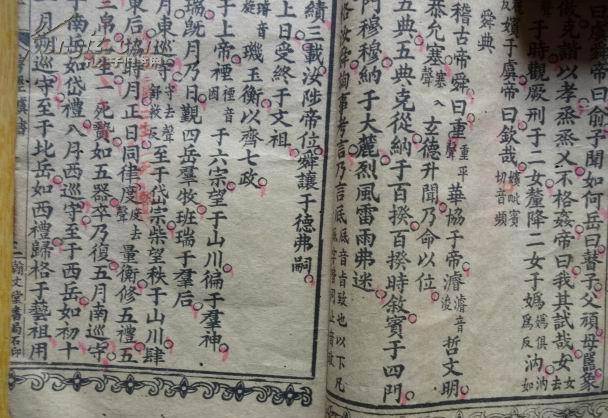 曰虞舜帝曰俞予聞如何岳曰瞽子父頑母嚚象
傲克諧以孝烝烝乂不格姦帝曰我其試哉女
于時觀厥刑于二女釐降二女于媯汭
嬪于虞帝曰欽哉嬪毗賓切音頻
舜典
稽古帝舜曰重平聲華協于帝濬濬音浚哲文明
恭允塞玄德升聞乃命以位
五典五典克從納于百揆百揆時敘賓于四門
門穆穆納于大麓烈風雷雨弗迷
舜詢事考言乃言底底音旨致也以下凡
績三載汝陟帝位舜讓于德弗嗣
上日受終于文祖
璣玉衡以齊七政
于上帝禋禋音因于六宗望于山川徧于羣神
瑞既月乃日覲四岳羣牧班瑞于羣后
月東巡守至于岱宗柴望秩于山川肆
東后協時月正日同律度量衡修五禮五
三帛二生一死贄如五器卒乃復五月南巡守
于南岳如岱禮八月西巡守至于西岳如初十
一月朔巡守至于北岳如西禮歸格于藝祖用
二 翰文堂書局石印